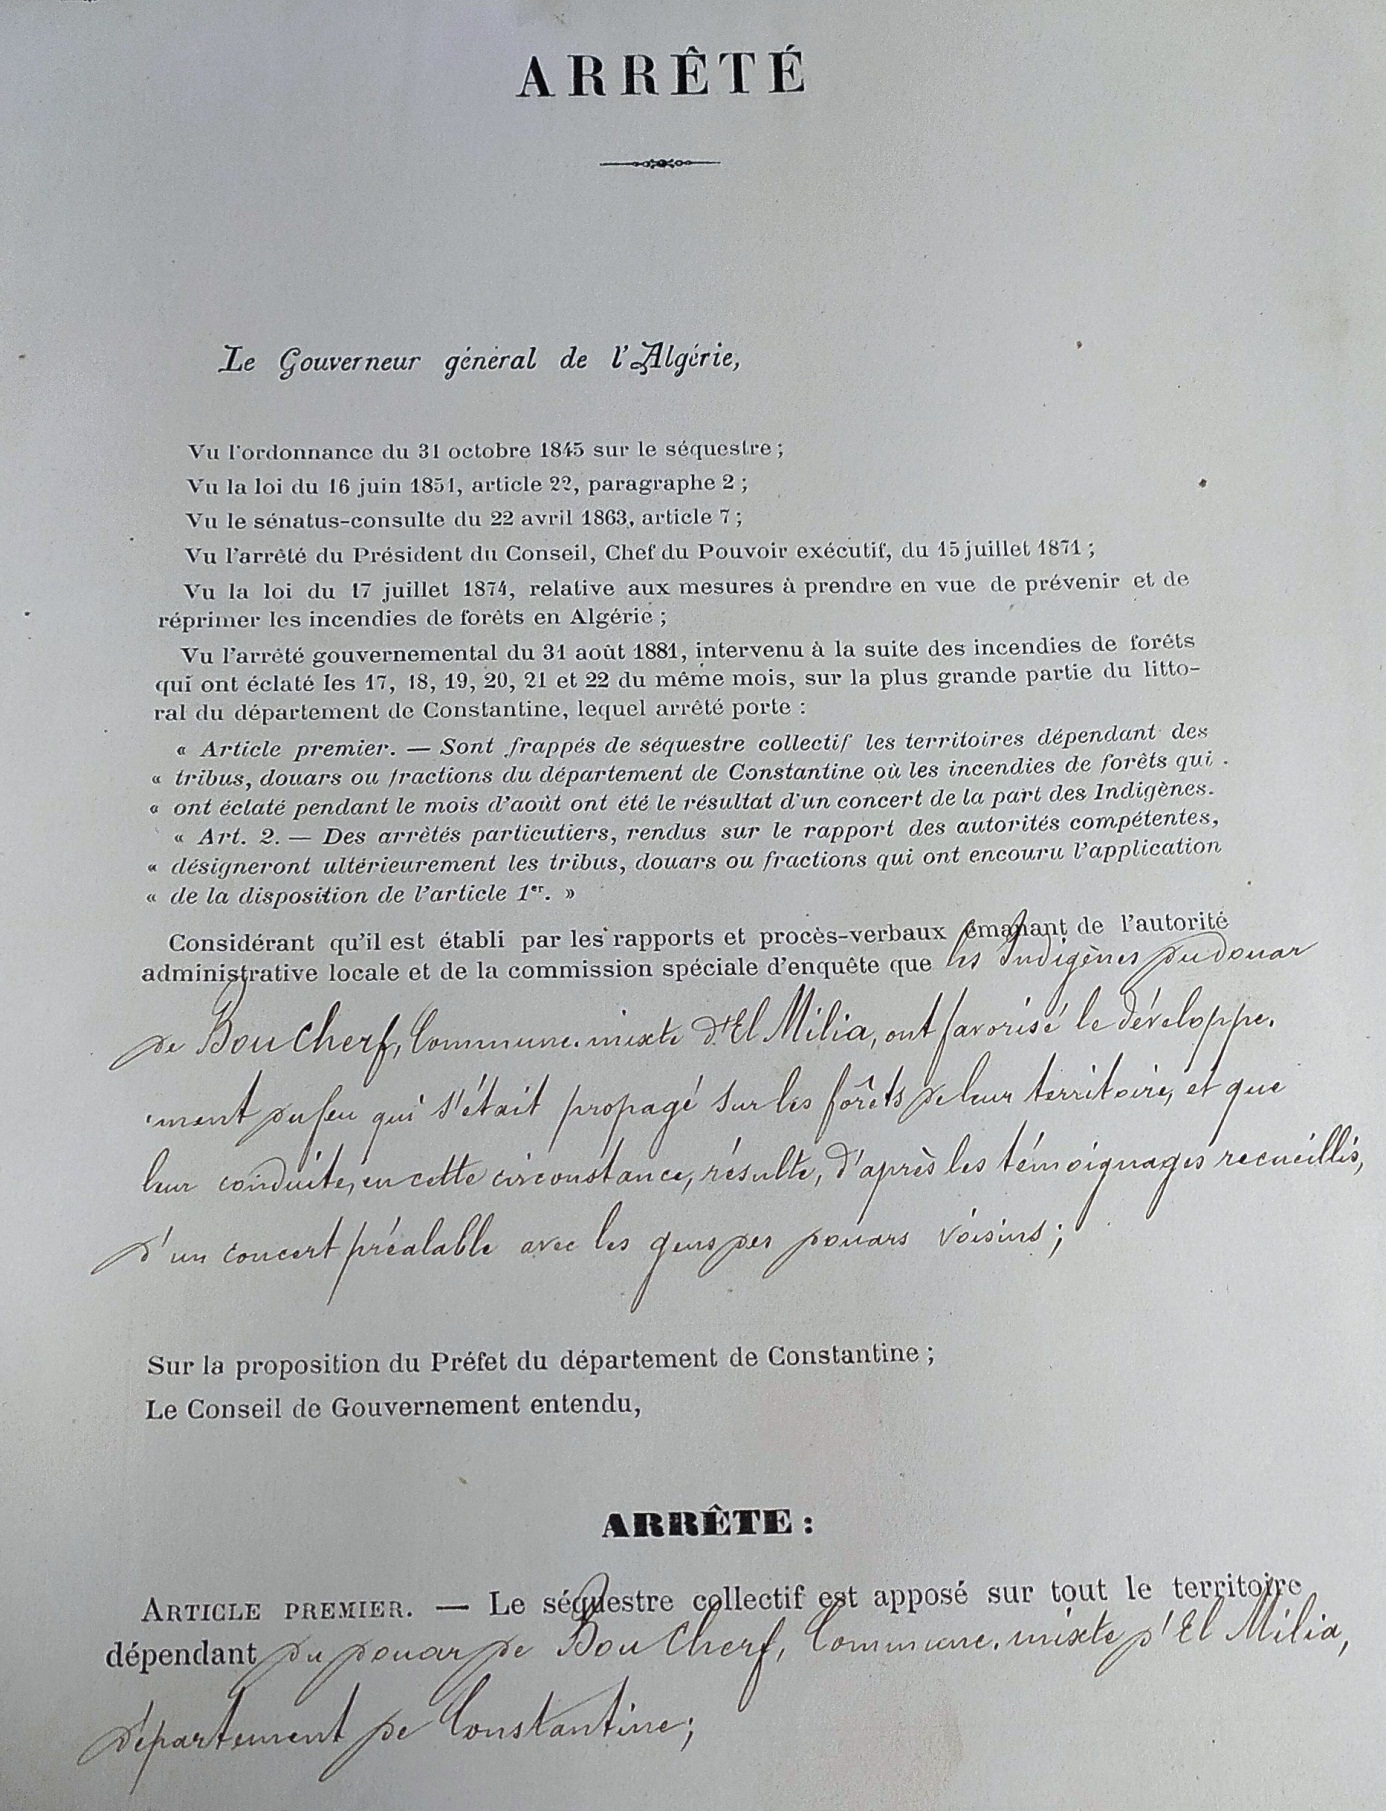 ARRÊTÉ
Le Gouverneur général de l'Algérie,
Vu l'ordonnance du 31 octobre 1845 sur le séquestre ;
Vu la loi du 16 juin 1851, article 22, paragraphe 2 ;
Vu le sénatus-consulte du 22 avril 1863, article 7 ;
Vu l'arrêté du Président du Conseil, Chef du Pouvoir exécutif, du 15 juillet 1871 ;
Vu la loi du 17 juillet 1874, relative aux mesures à prendre en vue de prévenir et de
réprimer les incendies de forêts en Algérie ;
Vu l'arrêté gouvernemental du 31 août 1881, intervenu à la suite des incendies de forêts
qui ont éclaté les 17, 18, 19, 20, 21 et 22 du même mois, sur la plus grande partie du litto-
ral du département de Constantine, lequel arrêté porte :
« Article premier. — Sont frappés de séquestre collectif les territoires dépendant des
« tribus, douars ou fractions du département de Constantine où les incendies de forêts qui
« ont éclaté pendant le mois d'août ont été le résultat d'un concert de la part des Indigènes.
« Art. 2. — Des arrêtés particutiers, rendus sur le rapport des autorités compétentes,
« désigneront ultérieurement les tribus, douars ou fractions qui ont encouru l'application
« de la disposition de l'article 1er. »
Considérant qu'il est établi par les rapports et procès-verbaux émanant de l'autorité
administrative locale et de la commission spéciale d'enquête que les Indigènes du douar
de Bou Cherf, Commune-mixte d'El Milia, ont favorisé le développe-
-ment du feu qui s'était propagé sur les forêts de leur territoire, et que
leur conduite, en cette circonstance, résulte, d'après les témoignages recueillis,
d'un concert préalable avec les gens des douars voisins ;
Sur la proposition du Préfet du département de Constantine ;
Le Conseil de Gouvernement entendu,
ARRÊTE :
ARTICLE PREMIER. — Le séquestre collectif est apposé sur tout le territoire
dépendant du douar de Bou Cherf, Commune-mixte d'El Milia,
département de Constantine ;